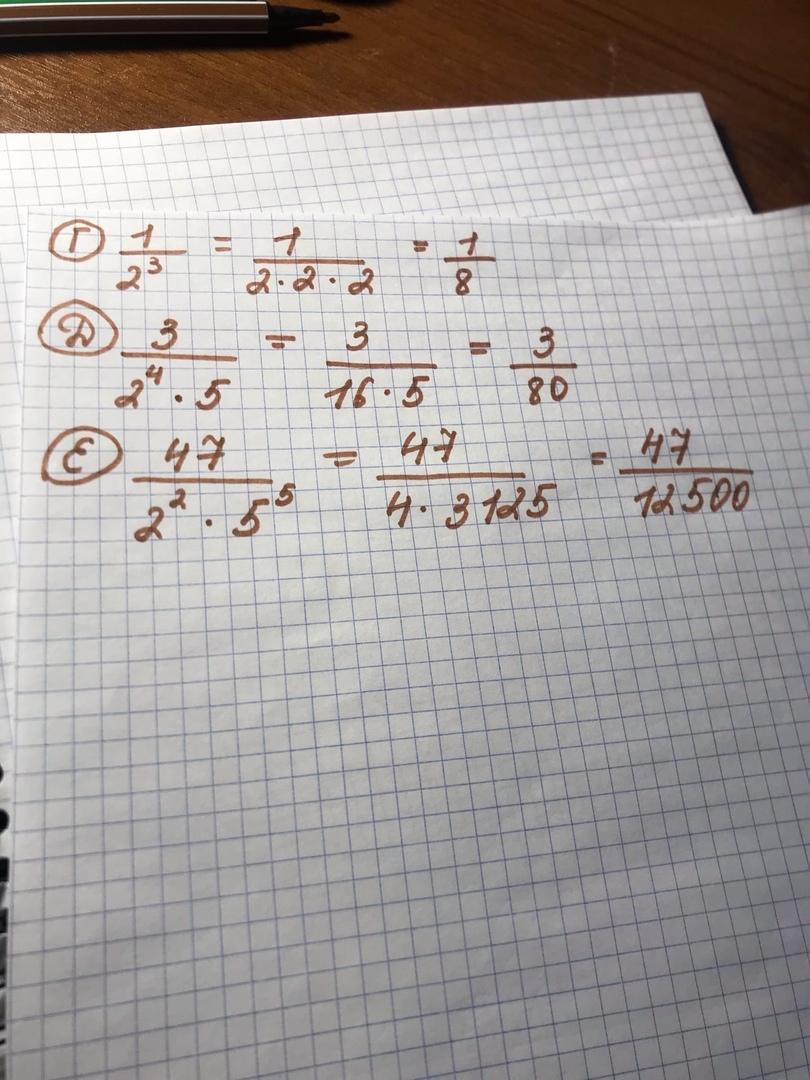 Г 1/2³ = 1/(2·2·2) = 1/8
Д 3/(2⁴·5) = 3/(16·5) = 3/80
Е 47/(2²·5⁵) = 47/(4·3125) = 47/12500